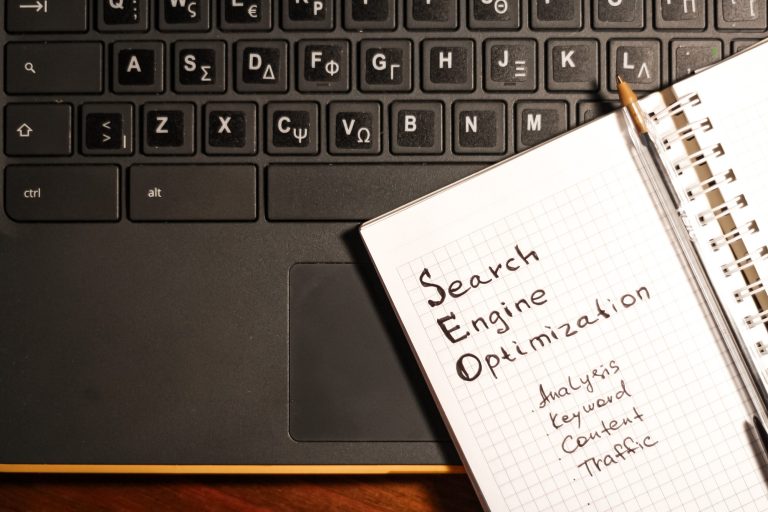 Q ; W ς E € R P Θ
A S Σ D Δ F Φ G Γ H J Ξ K L Λ
< > | Z X C Ψ V Ω B N M
ctrl alt
Search
Engine
Optimization
. Analysis
. Keyword
. Content
. Traffic
.